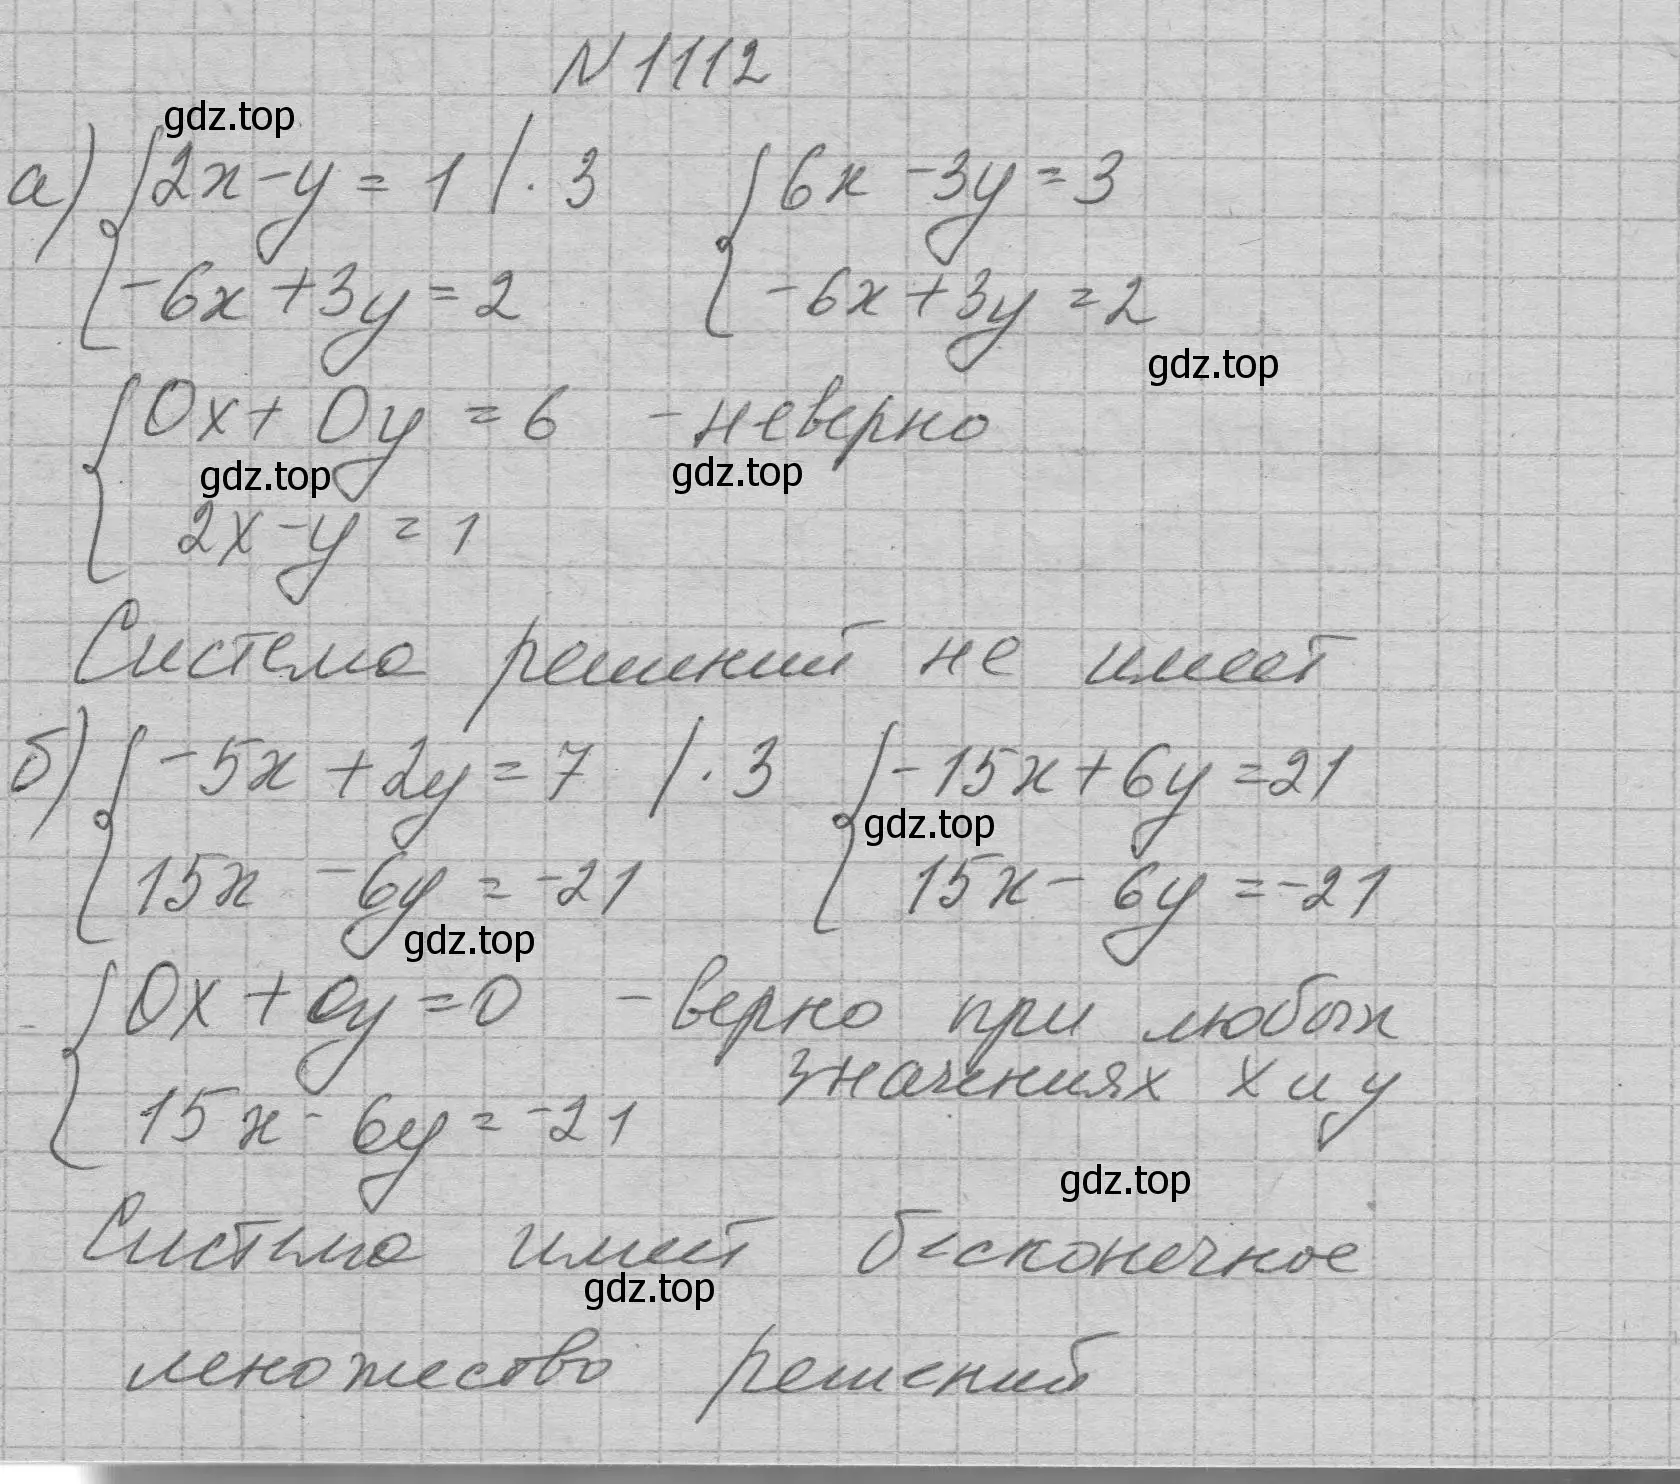 N 1112
gdz.top
а) { 2x - y = 1 | · 3 { 6x - 3y = 3
-6x + 3y = 2 -6x + 3y = 2
gdz.top
{ 0x + 0y = 6 - неверно
gdz.top gdz.top
2x - y = 1
Система решений не имеет
б) { -5x + 2y = 7 | · 3 { -15x + 6y = 21
gdz.top
15x - 6y = -21 15x - 6y = -21
gdz.top
{ 0x + 0y = 0 - верно при любых
значениях x и y
15x - 6y = -21
gdz.top
Система имеет бесконечное
gdz.top
множество решений